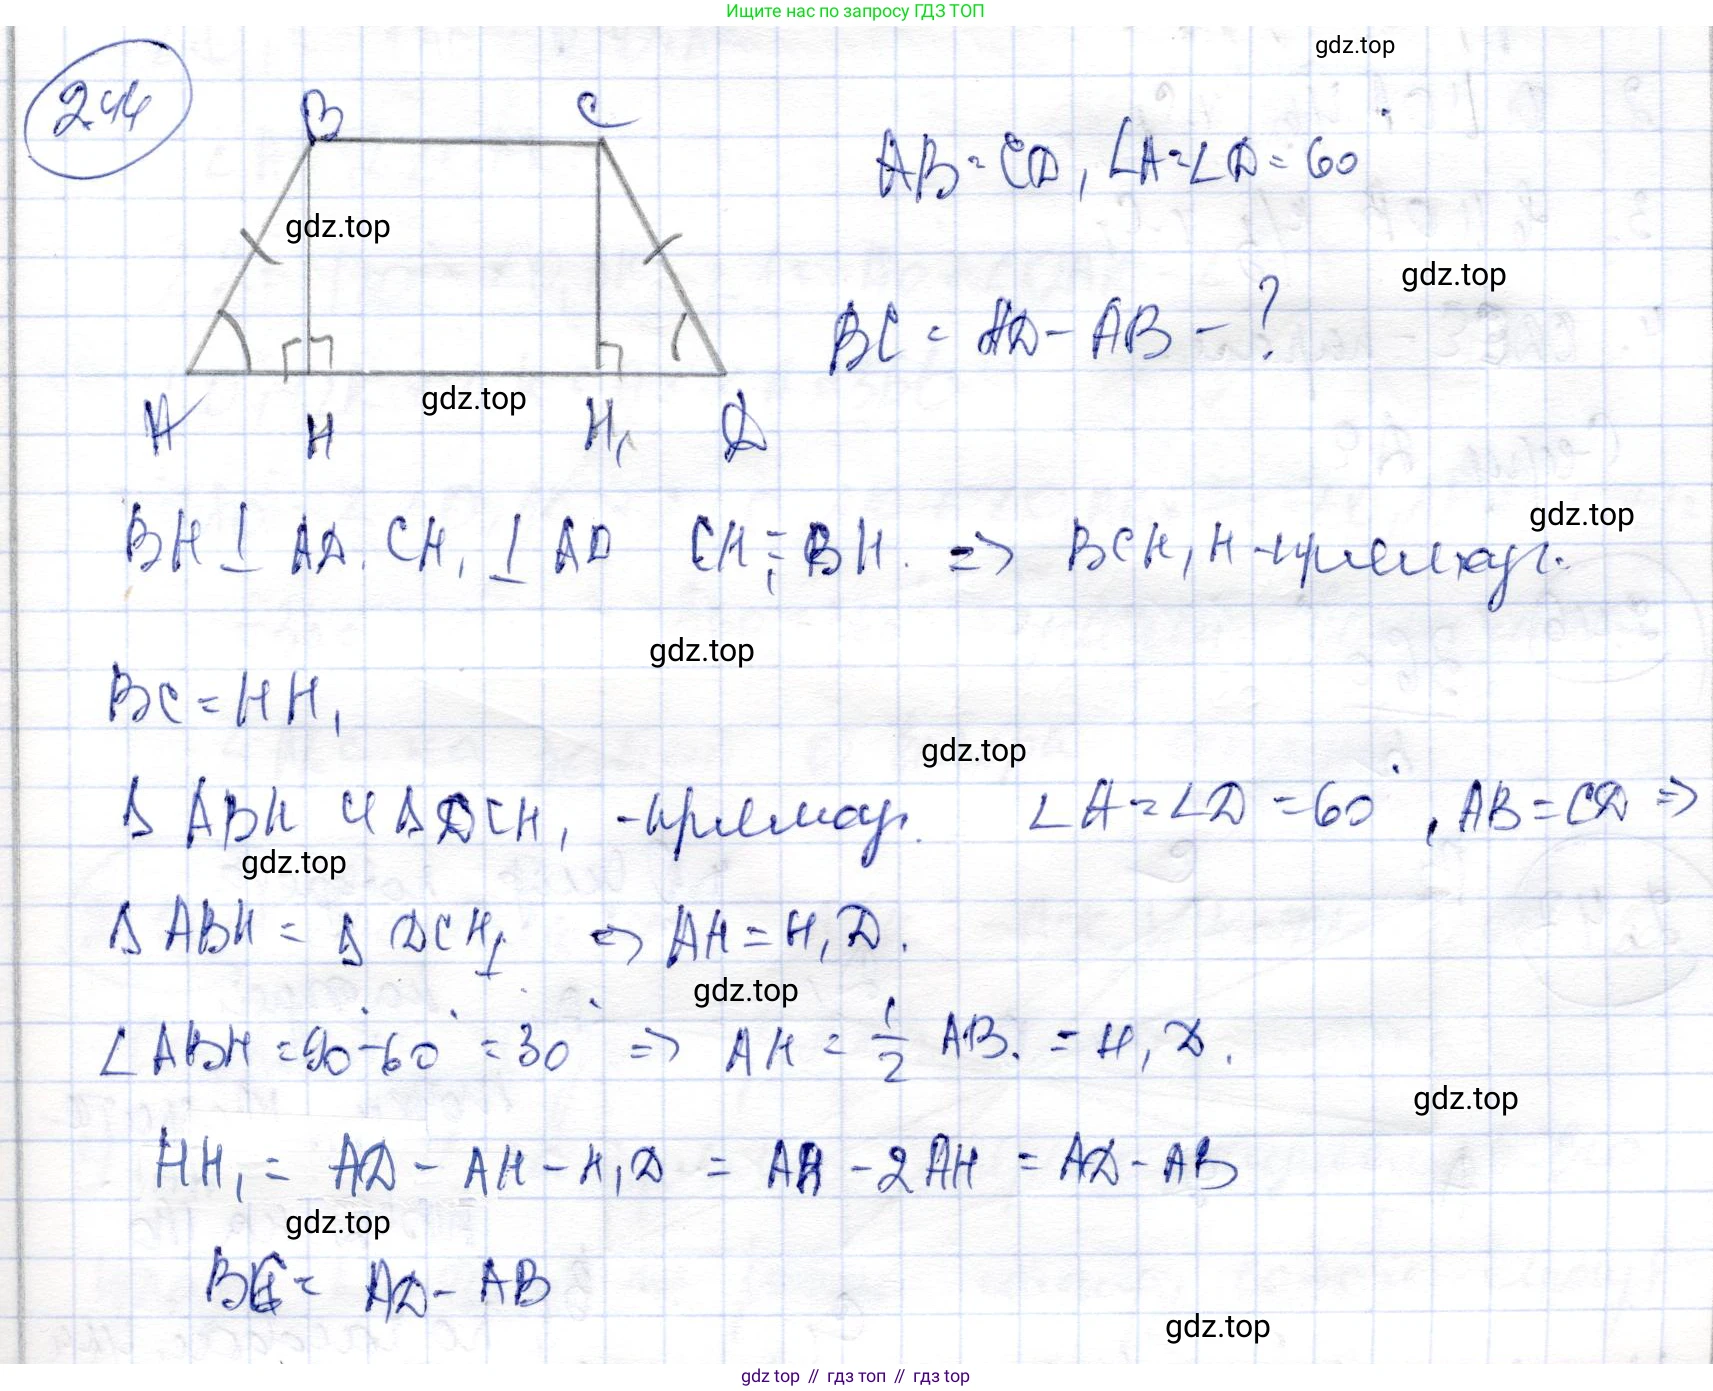 Ищите нас по запросу ГДЗ ТОП
gdz.top
2.44
B C
AB = CD, ∠A = ∠D = 60°
gdz.top
gdz.top
BC = AD - AB - ?
gdz.top
A H H₁ D
gdz.top
BH ⊥ AD, CH₁ ⊥ AD CH₁ = BH. => BCH₁H - прямоуг.
gdz.top
BC = HH₁
gdz.top
Δ ABH и Δ DCH₁ - прямоуг. ∠A = ∠D = 60°, AB = CD =>
gdz.top
Δ ABH = Δ DCH₁ => AH = H₁D.
gdz.top
∠ABH = 90° - 60° = 30° => AH = 1/2 AB. = H₁D.
gdz.top
HH₁ = AD - AH - H₁D = AD - 2AH = AD - AB
gdz.top
BC = AD - AB
gdz.top
gdz top // гдз топ // гдз top